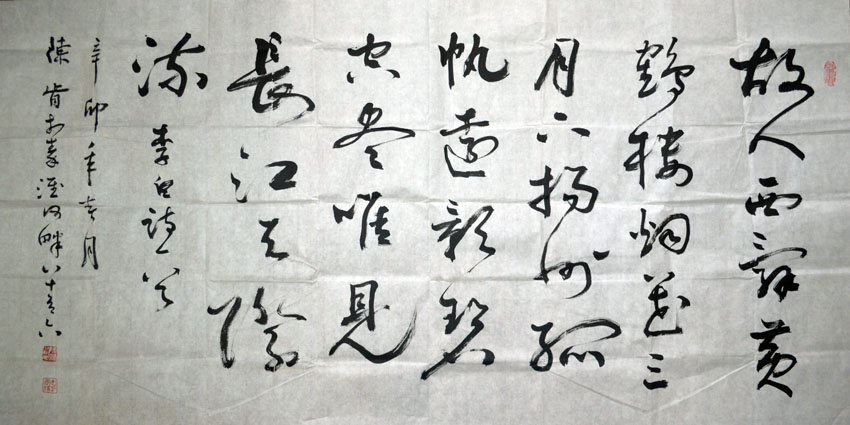 故人西辭黃
鶴樓烟花三
月下揚州孤
帆遠影碧
空盡唯見
長江天際
流
李白詩一首
辛卯年春月
陳肯 河畔八十